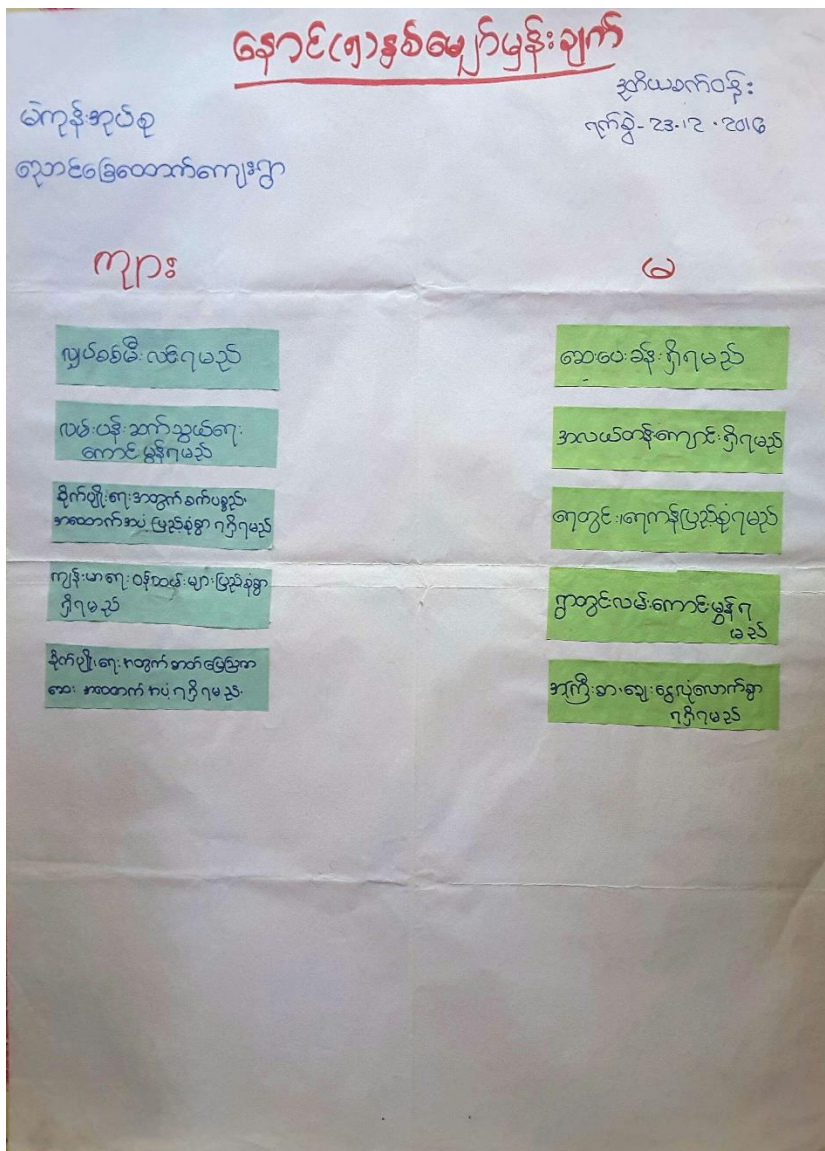 နောင်(၅)နှစ်မျှော်မှန်းချက်
ဒုတိယစက်ဝန်း
ရက်စွဲ- 23.12.2016
မဲကုန်းအုပ်စု
ညောင်ခြေထောက်ကျေးရွာ
ကျား
မ
လျှပ်စစ်မီးလင်းရမည်
လမ်းပန်းဆက်သွယ်ရေး
ကောင်းမွန်ရမည်
စိုက်ပျိုးရေးအတွက်စက်ပစ္စည်း
အထောက်အပံ့ပြည့်စုံစွာရရှိရမည်
ကျန်းမာရေးဝန်ထမ်းများပြည့်စုံစွာ
ရှိရမည်
စိုက်ပျိုးရေးအတွက်ဓာတ်မြေသြဇာ
ဆေး အထောက်အပံ့ရရှိရမည်.
ဆေးပေးခန်းရှိရမည်
အလယ်တန်းကျောင်းရှိရမည်
ရေတွင်း၊ရေကန်ပြည့်စုံရမည်
ရွာတွင်းလမ်းကောင်းမွန်ရ
မည်
အကြီးစားချေးငွေလုံလောက်စွာ
ရရှိရမည်